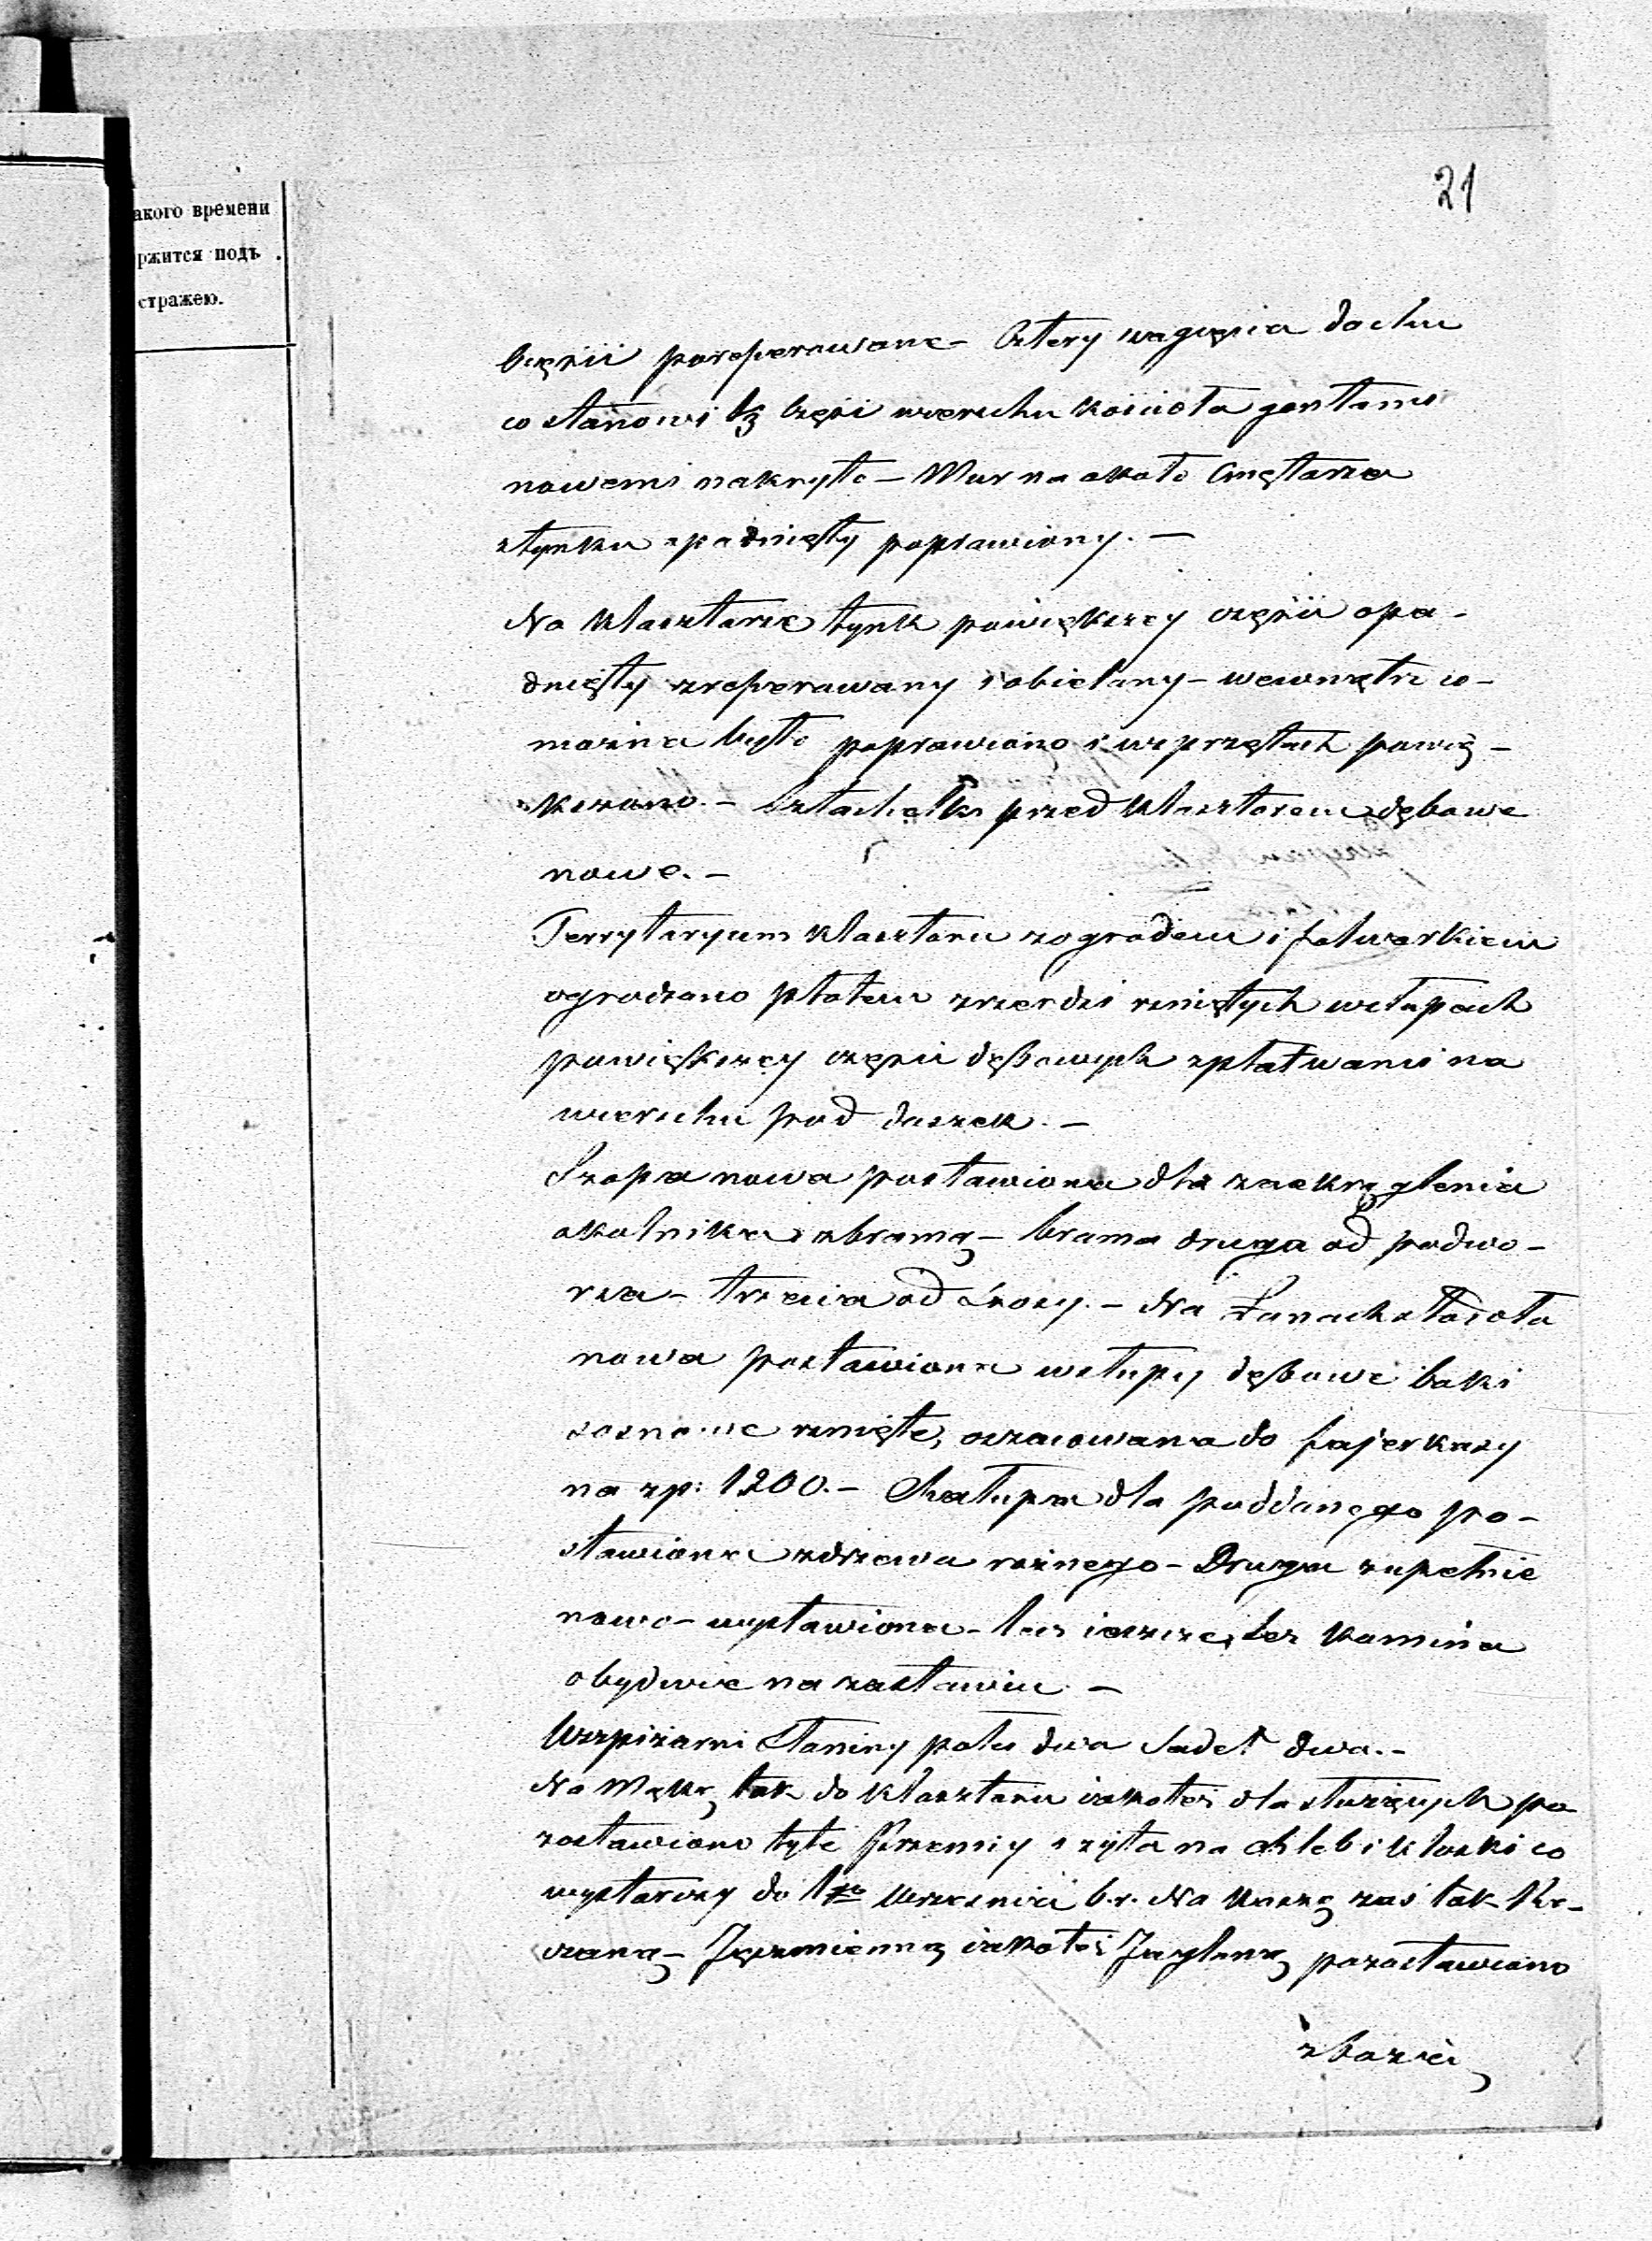 21
акого времени
ржится подъ
стражею.
części poreperowane – Cztery wagięcia dachu
co stanowi ⅓ części wierzchu kościoła gontami
nowemi nakryto – Mur na około Cmętarza
z tynku opadnięty poprawiony. –
Na klasztorze tynk powiększey części opa-
dnięty zreperowany i obielany – wewnątrz co
można było poprawiono i w sprzętach powię-
kszono. – Sztachetki przed klasztorem dębowe
nowe. –
Terrytoryum klasztoru z ogrodem i folwarkiem
ogrodzono płotem z żerdzi rzniętych w słupach
powiększey części dębowych z płatwami na
wierzchu pod daszek. –
Szopa nowa postawiona dla zaokrąglenia
okolnika z bramą – brama druga od podwo-
rza – trzecia od Szosy. – Na Łanach stodoła
nowa postawiona w słupy dębowe boki
sosnowe rznięte, oszacowana do fajerkasy
na zp: 1200. – Chałupa dla poddanego po-
stawiona z drzewa rożnego – Druga zupełnie
nowo – wystawiona – lecz ieszcze bez komina
obydwie na zastawiu. –
W Szpiżarni Słoniny połci dwa Sadeł dwa. –
Na Mąkę tak do klasztoru iakoteż dla służących po
zostawiono tyle Przenicy i żyta na chleb i kluski co
wystarczy do 1go Września b.r. Na Kaszę zaś tak Ta-
rczaną – Jęczmienną iakoteż Jaglaną pozostawiono
zboża